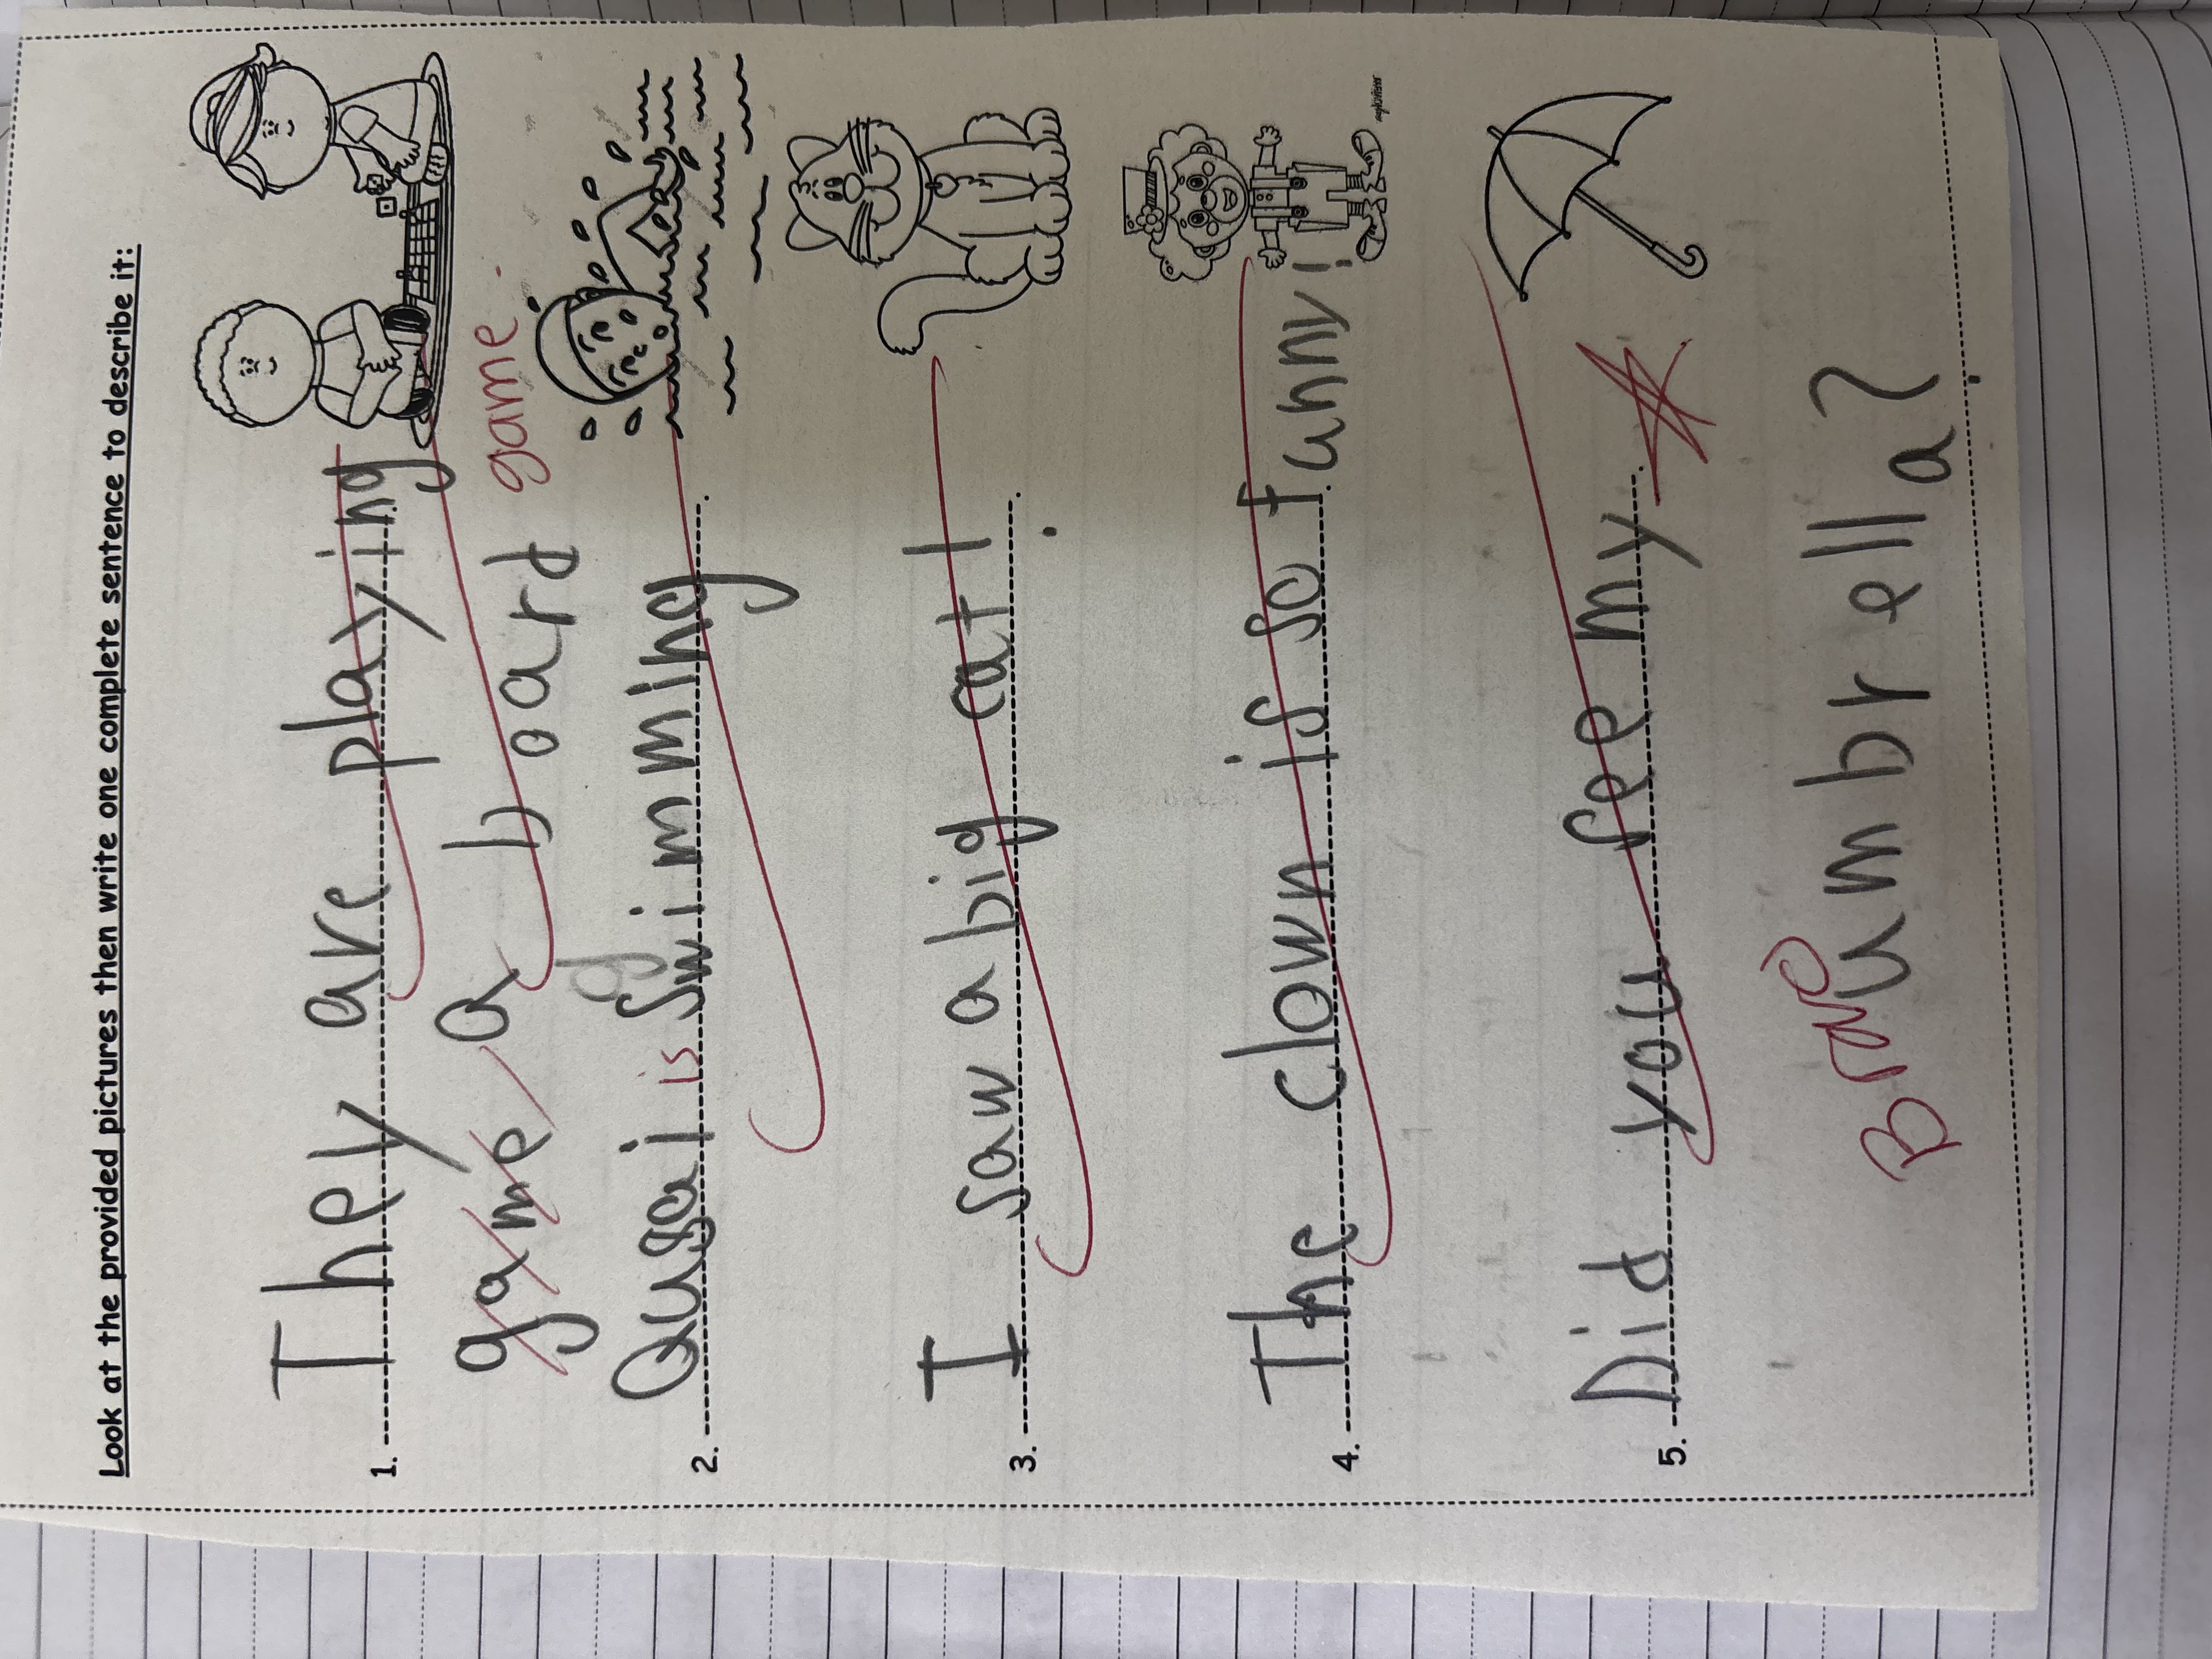 Look at the provided pictures then write one complete sentence to describe it:
1. They are playing
game a board game.
2. Qusai is Swimming
3. I saw a big cat!
4. The clown is so funny!
5. Did you see my
umbrella?
Bravo